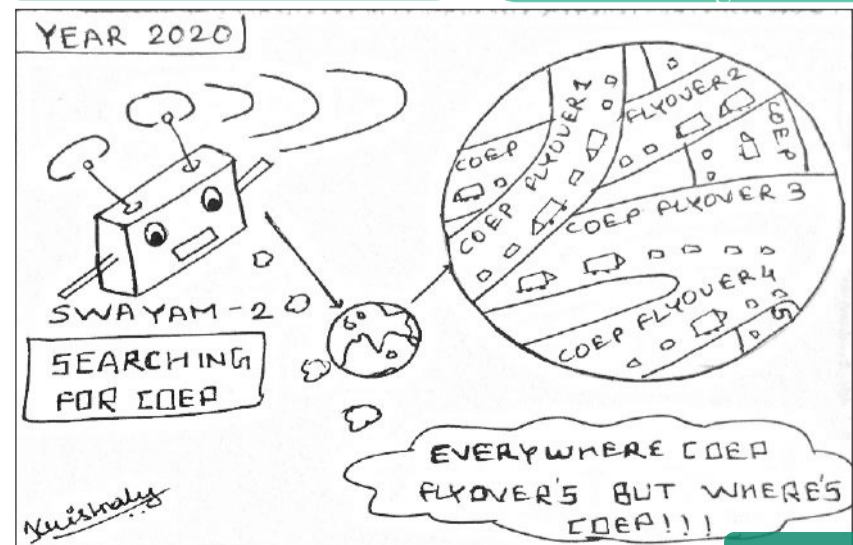 YEAR 2020
SWAYAM-2
SEARCHING
FOR COEP
COEP
COEP FLYOVER 1
FLYOVER 2
COEP
COEP FLYOVER 3
COEP FLYOVER 4
5
EVERYWHERE COEP
FLYOVER'S BUT WHERE'S
COEP!!!